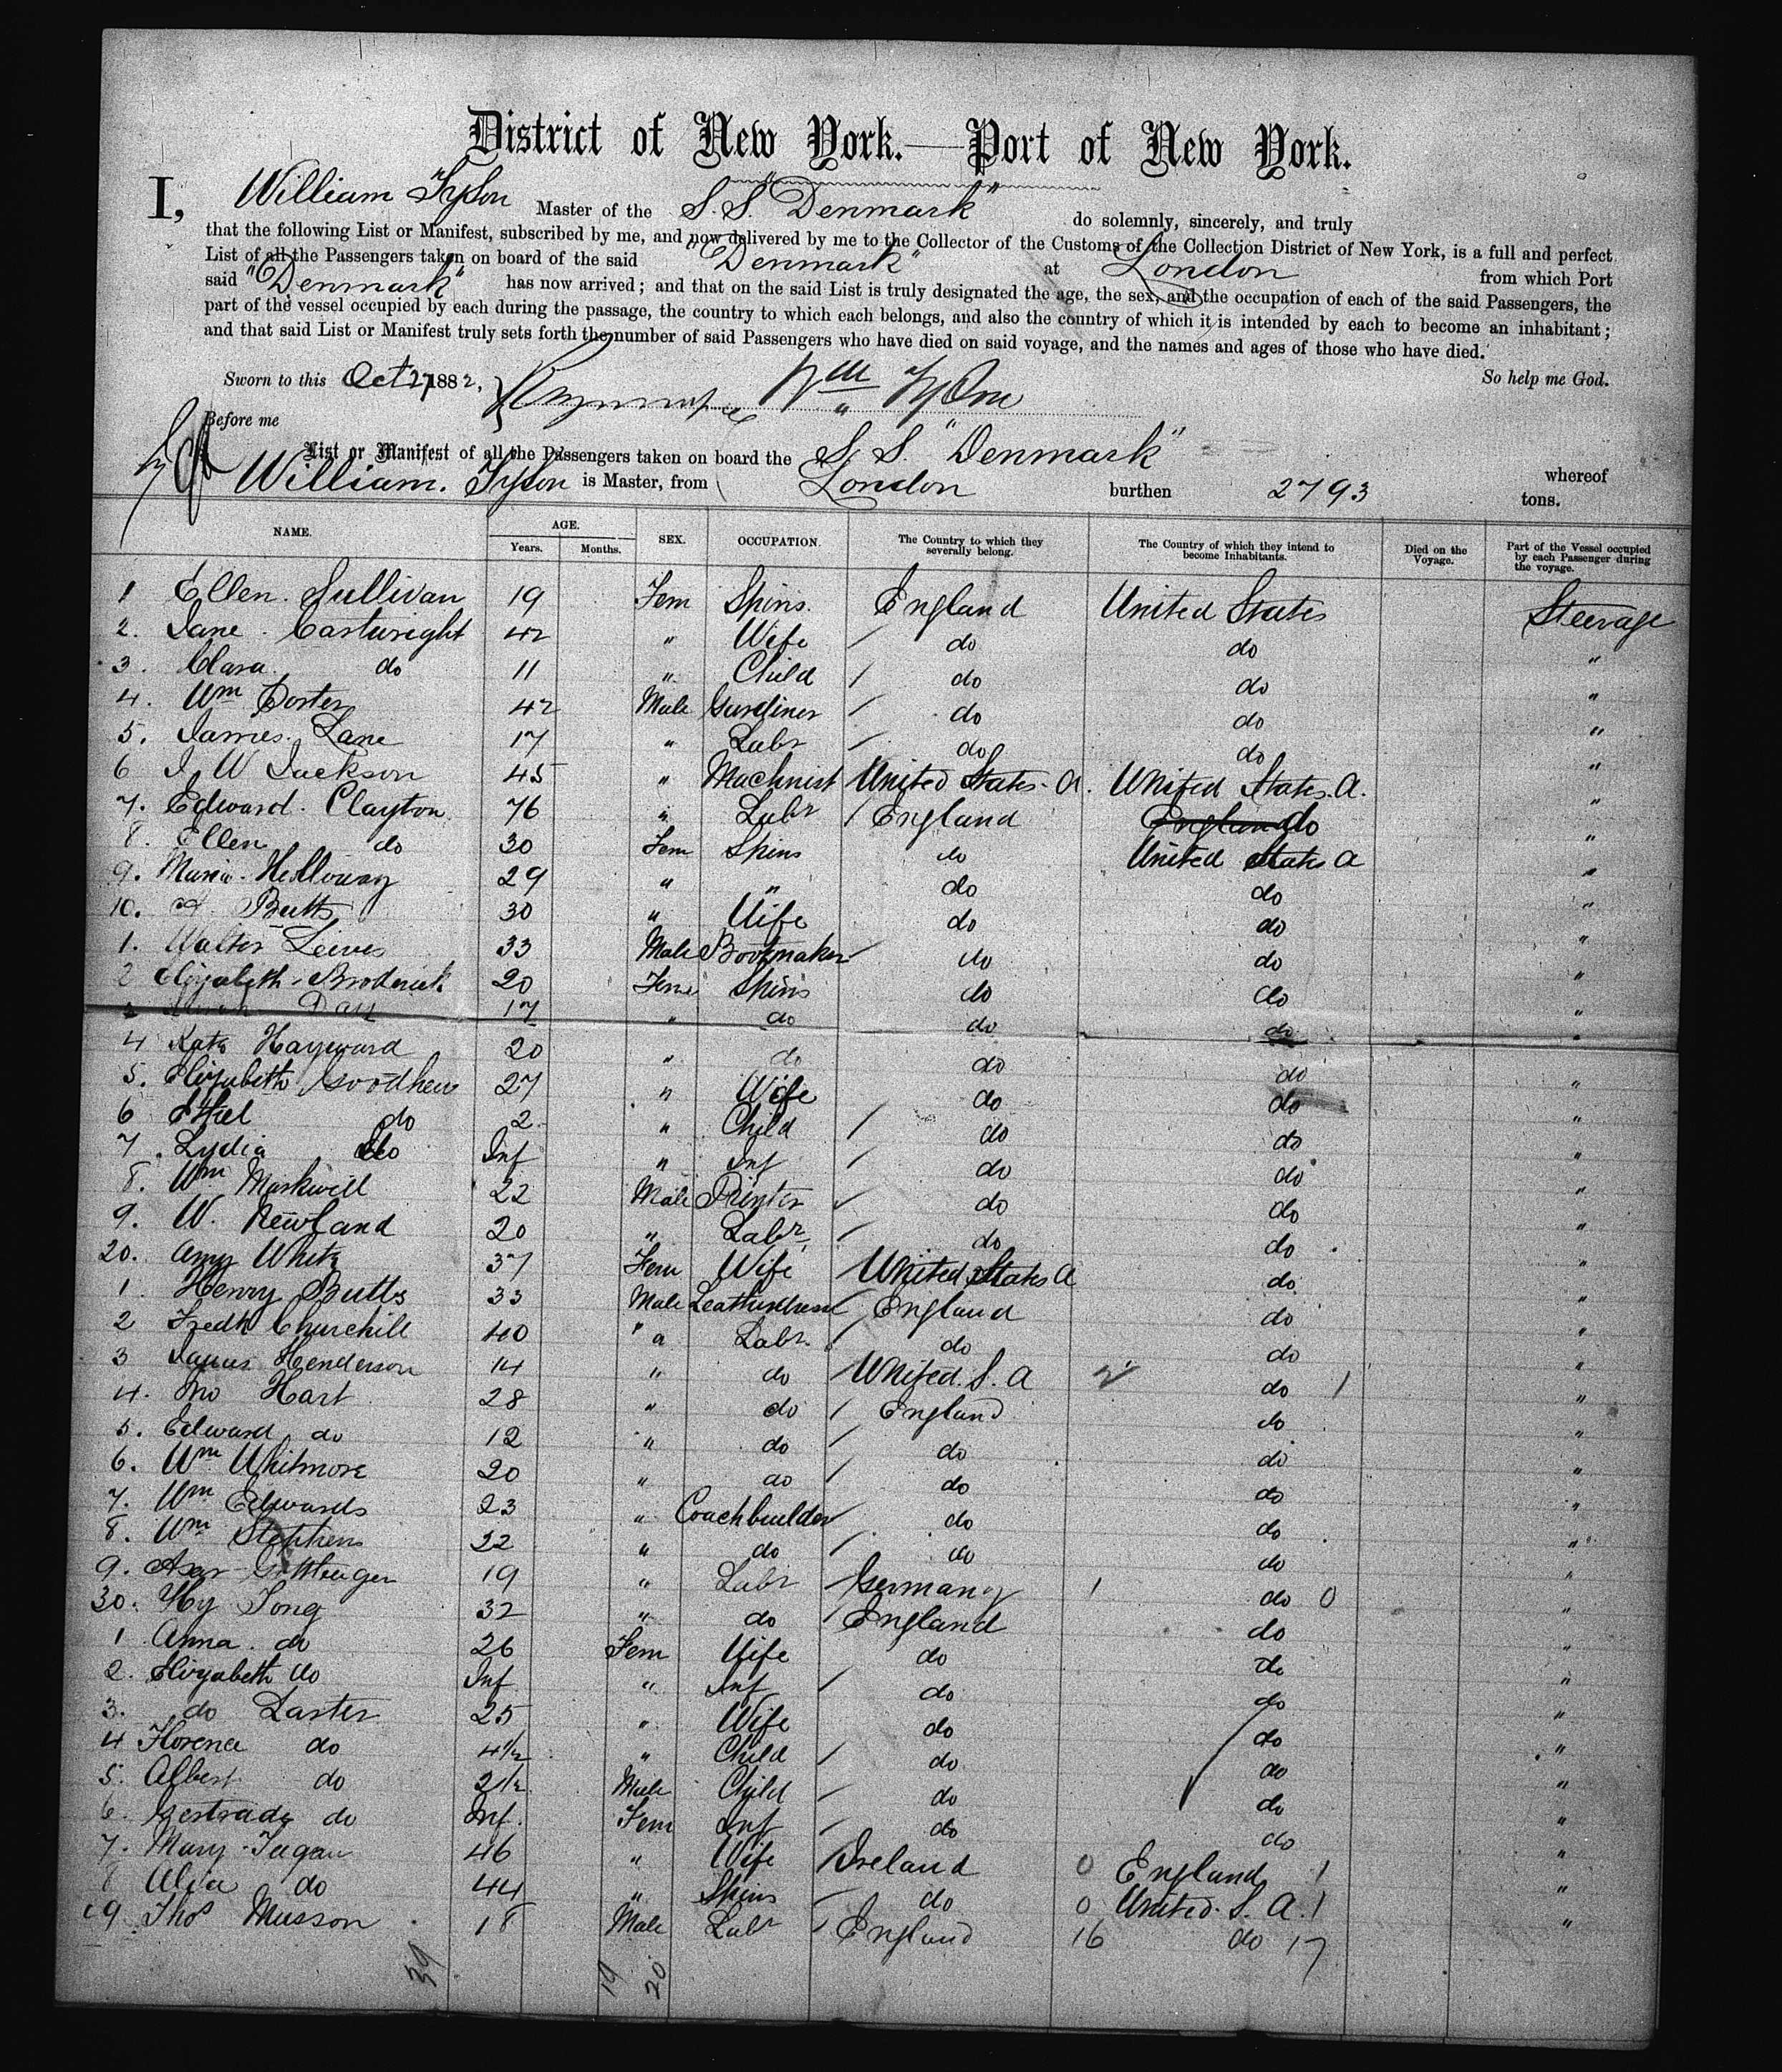 District of New York.—Port of New York.
I, William Tyson Master of the S.S. "Denmark" do solemnly, sincerely, and truly
that the following List or Manifest, subscribed by me, and now delivered by me to the Collector of the Customs of the Collection District of New York, is a full and perfect
List of all the Passengers taken on board of the said "Denmark" at London from which Port
said "Denmark" has now arrived; and that on the said List is truly designated the age, the sex, and the occupation of each of the said Passengers, the
part of the vessel occupied by each during the passage, the country to which each belongs, and also the country of which it is intended by each to become an inhabitant;
and that said List or Manifest truly sets forth the number of said Passengers who have died on said voyage, and the names and ages of those who have died.
Sworn to this Oct 27 1882, Wm Tyson So help me God.
Before me
List or Manifest of all the Passengers taken on board the S.S. "Denmark" whereof
William. Tyson is Master, from London burthen 2793 tons.
NAME. AGE. Years. Months. SEX. OCCUPATION. The Country to which they severally belong. The Country of which they intend to become Inhabitants. Died on the Voyage. Part of the Vessel occupied by each Passenger during the voyage.
1 Ellen Sullivan 19 Fem Spins. England United States Steerage
2. Jane Cartwright 42 " Wife / do do "
3. Clara do 11 " Child / do do "
4. Wm Porter 42 Male Gardiner / do do "
5. James Lane 17 " Labr / do do "
6 J W Jackson 45 " Machnist United States. A. United States. A. "
7. Edward Clayton 76 " Labr / England England do "
8. Ellen do 30 Fem Spins do United States A "
9. Maria Holloway 29 " " do do "
10. A. Butts 30 " Wife do do "
1. Walter 33 Male Bootmaker do do "
2 Elizabeth Broderick 20 Fem Spins do do "
3 Day 17 " do do do "
4 Kate Hayward 20 " do do do "
5. Elizabeth Goodhew 27 " Wife do do "
6 Ethel do 2 " Child / do do "
7. Lydia do Inf " Inf / do do "
8. Wm Markwell 22 Male Printer / do do "
9. W. Newland 20 " Labr / do do "
20. Amy White 37 Fem Wife / United States A do "
1. Henry Butts 33 Male / England do "
2 Fredk Churchill 40 " Labr / do do "
3 James Henderson 14 " do / United. S. A 2 do 1 "
4. Jno Hart 28 " do / England do "
5. Edward do 12 " do / do do "
6. Wm Whitmore 20 " do / do do "
7. Wm Edwards 23 " Coachbuilder / do do "
8. Wm Stephens 22 " do / do do "
9. 19 " Labr / Germany 1 do 0 "
30. Hy Tong 32 " do / England do "
1 Anna do 26 Fem Wife do do "
2. Elizabeth do Inf " Inf / do do "
3. do Laster 25 " Wife do do "
4 Florence do 4 1/2 " Child / do do "
5. Albert do 2 1/2 Male Child / do do "
6. Gertrude do Inf. Fem Inf / do do "
7. Mary 46 " Wife / Ireland 0 England 1 "
8 do 44 " Spins / do 0 United. S. A. 1 "
9 Thos Musson 18 Male Labr / England 16 do 17 "
39 19 20